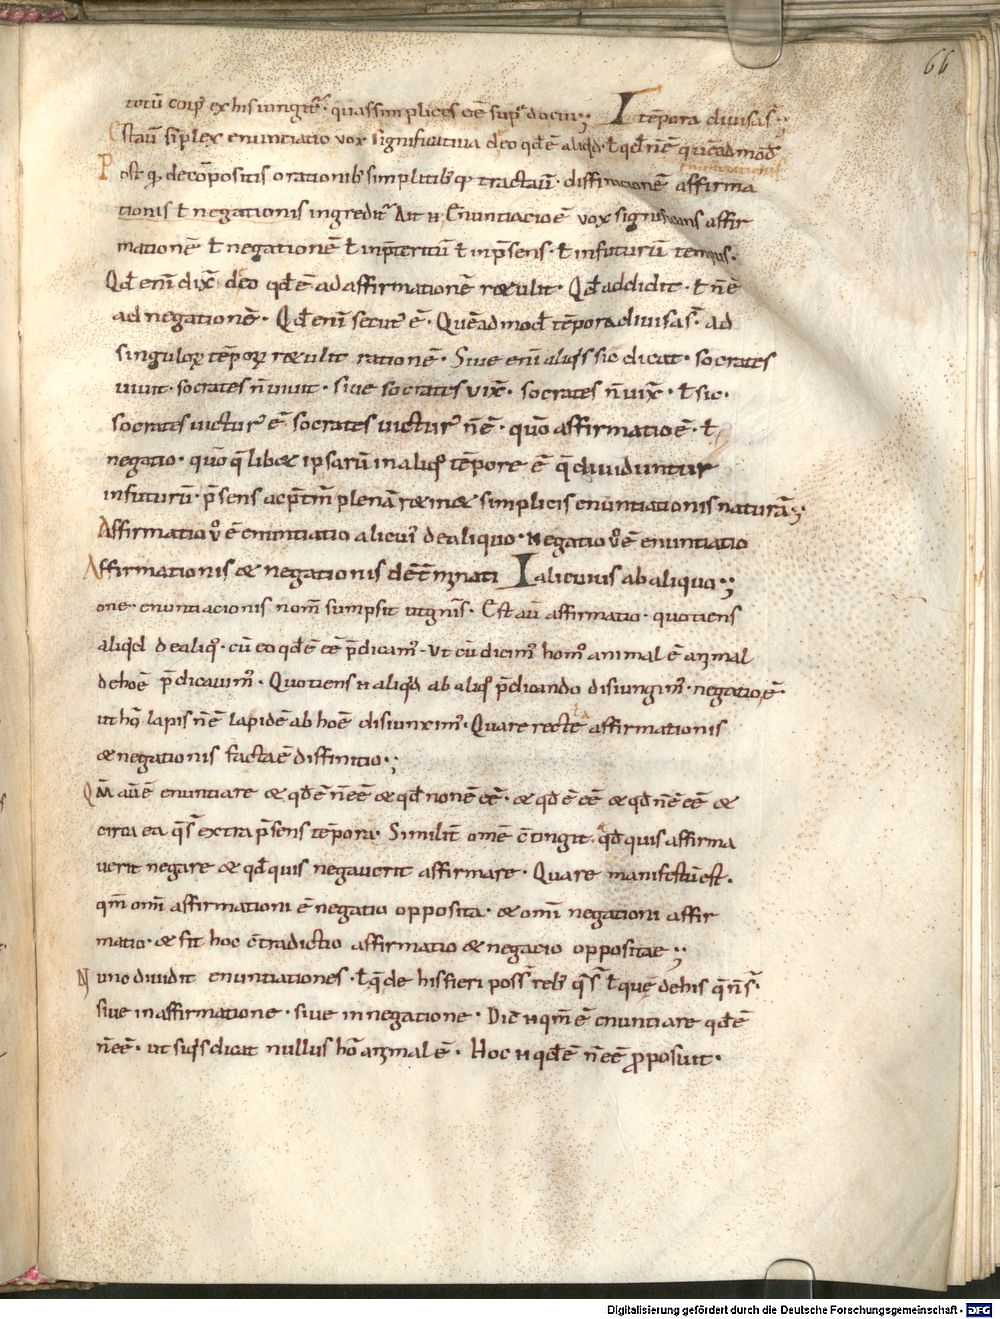 66
totū corp⁹ ex his iungit̄. quas simplices eē sup̄ docui;; I tēpora diuisas̄;;
Est aū simplex enunciatio vox significatiua de eo qd̄ ē aliqd. ł qd̄ n̄ ē quēadmod̄
Postq̄ de cōpositis orationib; simplicib; q; tractauit. diffinicionē affirma
tionis ł negationis ingredit̄. Ait n̄ Enuntiacio ē vox significans affir
mationē ł negationē ł in p̄teritū ł in p̄sens. ł in futurū tempus.
Qd̄ enī dix̄ de eo qd̄ ē ad affirmationē retulit. Qd̄ addidit. ł n̄ ē
ad negationē. Qd̄ enī secut⁹ ē. Quēadmod̄ tēpora diuisas̄. ad
singulor̄ tēpor̄ retulit rationē. Siue enī aliq̄s sic dicat. socrates
uiuit. socrates n̄ uiuit. siue socrates vix̄. socrates n̄ uix̄. ł sic.
socrates uictur⁹ ē. socrates uictur⁹ n̄ ē. quō affirmatio ē. ł
negatio. quō q̄libet ipsarū in aliq̄ tēpore ē q̄ diuiduntur
in futurū. p̄sens ac p̄t̄m plenā retinet simplicis enuntiationis naturā;;
Affirmatio v̊ ē enuntiatio alicui⁹ de aliquo. Negatio v̊ ē enuntiatio
Affirmationis & negationis det̄minati I alicuius ab aliquo;;
one. enuntiacionis nom̄ sumpsit ut gn̄is. Est aū affirmatio. quotiens
aliq̄d de aliq̄. cū eo qd̄ ē eē p̄dicam⁹. Ut cū dicim⁹ hom̄o animal ē animal
de hoē p̄dicauim⁹. Quotiens n̄ aliq̄d ab aliq̄ p̄dicando disiungim⁹. negatio ē.
ut hō lapis n̄ ē lapidē ab hoē disiunxim⁹. Quare recte affirmationis
& negationis facta ē diffinitio.;
Qm̄ aū ē enuntiare & qd̄ ē n̄ eē & qd̄ non ē eē. & qd̄ ē eē & qd̄ n̄ ē eē &
circa ea q̄ s̄ extra p̄sens tēpora. Similit̄ om̄e c̄tingit. qd̄ quis affirma
uerit negare & qd̄ quis negauerit affirmare. Quare manifestū est.
qm̄ om̄i affirmationi ē negatio opposita. & om̄i negationi affir
matio. & sit hoc c̄tradictio affirmatio & negacio oppositae;;
Nunc diuidit enuntiationes. ł q̄ de his fieri poss̄ reb; q̄ s̄ ł que de his q̄ n̄ s̄.
siue in affirmatione. siue in negatione. Dic̄ n̄ qm̄ ē enuntiare qd̄ ē
n̄ eē. ut si q̄s dicat nullus hō animal ē. Hoc n̄ qd̄ ē n̄ eē proposuit.
Digitalisierung gefördert durch die Deutsche Forschungsgemeinschaft - DFG